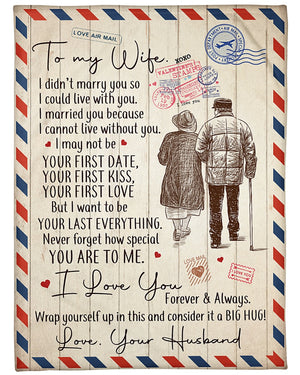 LOVE AIR MAIL
To my Wife,
XOXO
I didn't marry you so
I could live with you.
I married you because
I cannot live without you.
I may not be
YOUR FIRST DATE,
YOUR FIRST KISS,
YOUR FIRST LOVE
But I want to be
YOUR LAST EVERYTHING.
Never forget how special
YOU ARE TO ME.
I Love You
Forever & Always.
Wrap yourself up in this and consider it a BIG HUG!
Love, Your Husband
VALENTINE'S
I love you
LOVE MAIL